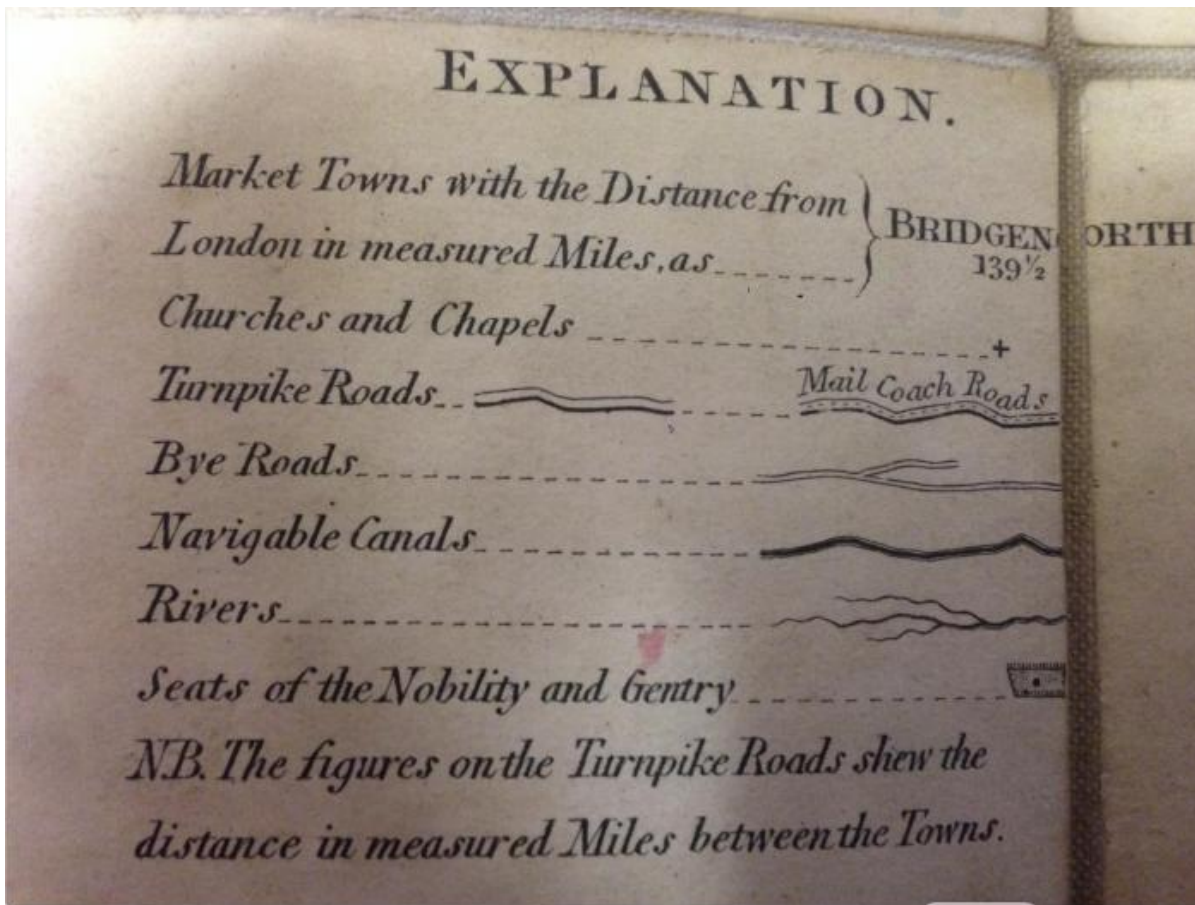 EXPLANATION.
Market Towns with the Distance from
London in measured Miles, as
BRIDGENORTH
139½
Churches and Chapels
+
Turnpike Roads
Mail Coach Roads
Bye Roads
Navigable Canals
Rivers
Seats of the Nobility and Gentry
N.B. The figures on the Turnpike Roads shew the
distance in measured Miles between the Towns.